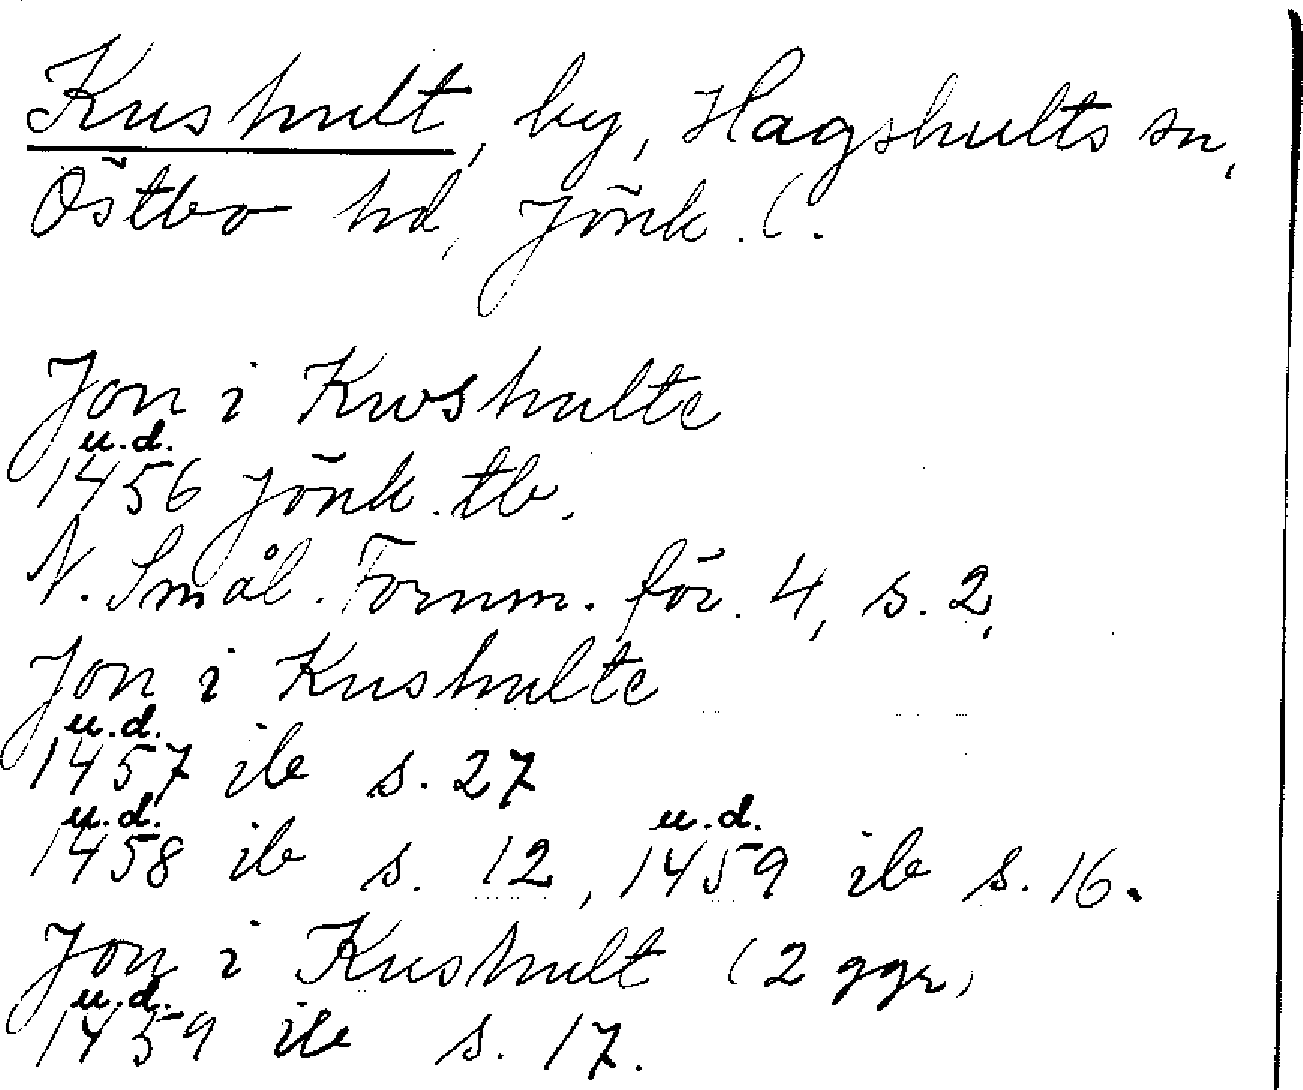 Kushult, by, Hagshults sn,
Östbo hd, Jönk. l.
Jon i Kwshulte
u.d.
1456 Jönk. tb.
N. Smål. Fornm. för. 4, s. 2,
Jon i Kushulte
u.d.
1457 ib s. 27
u.d. u.d.
1458 ib s. 12, 1459 ib s. 16.
Jon i Kushult (2 ggr)
u.d.
1459 ib s. 17.